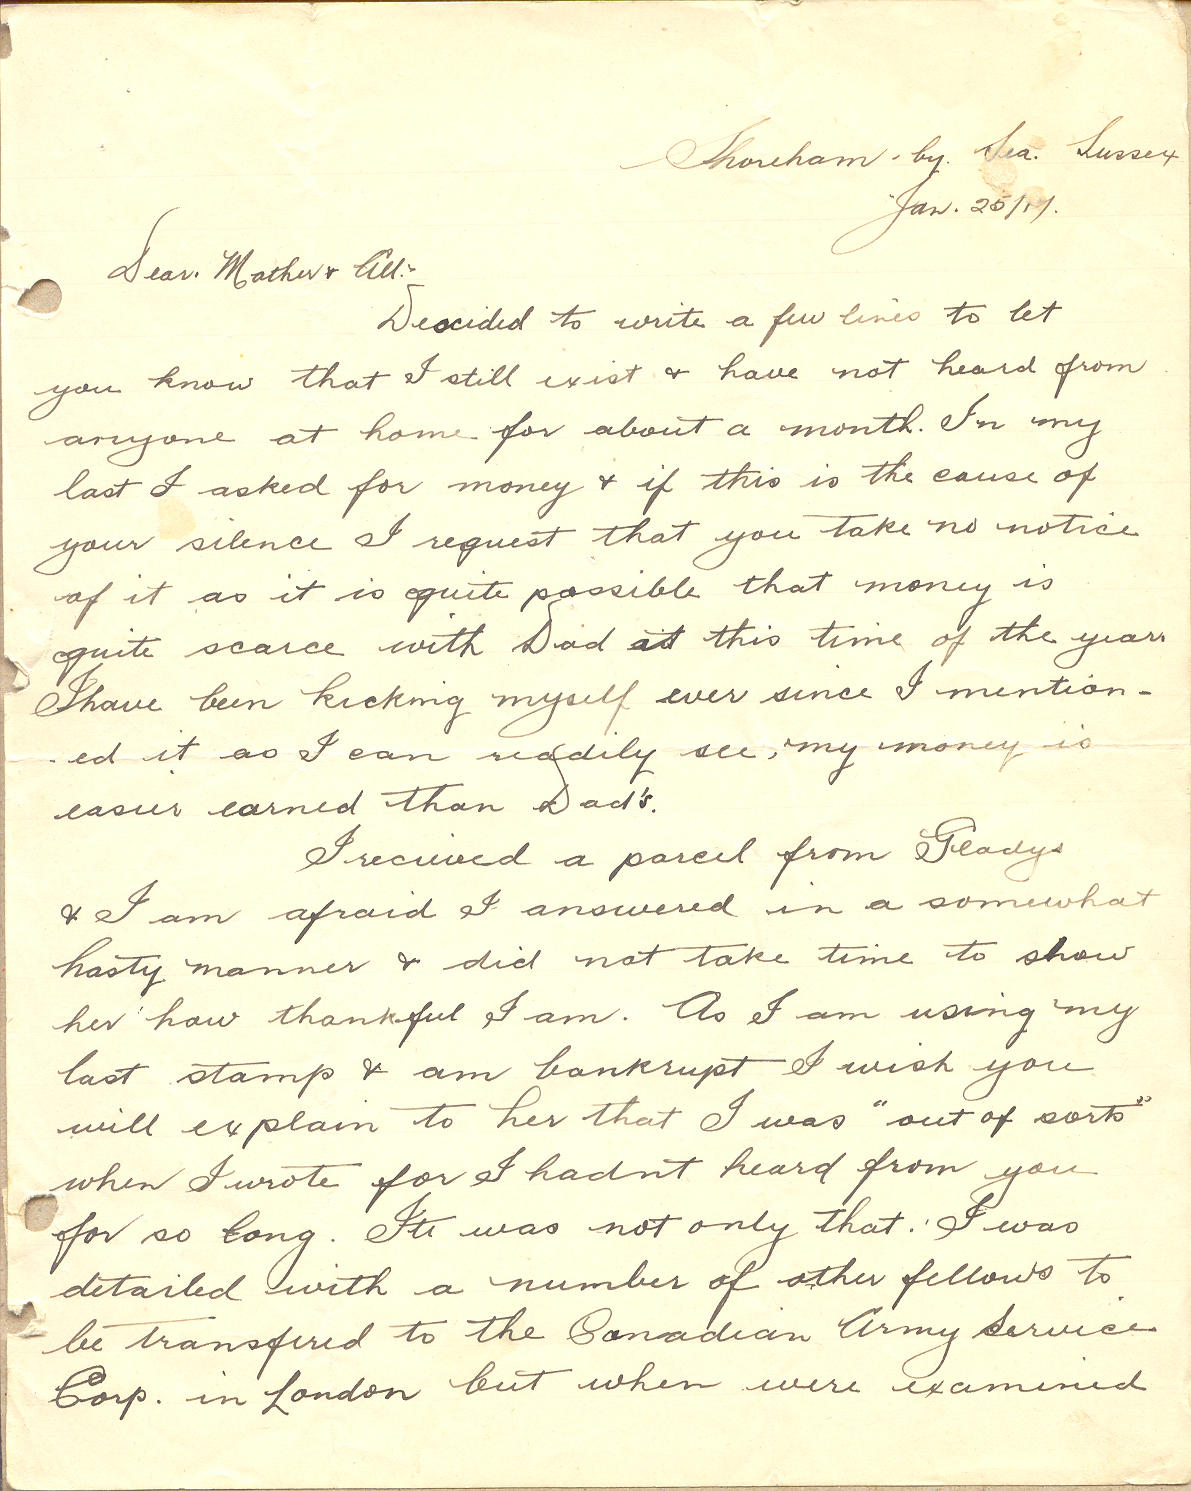 Shoreham-by-Sea. Sussex
Jan. 25/17.
Dear. Mother & All:-
Decided to write a few lines to let
you know that I still exist & have not heard from
anyone at home for about a month. In my
last I asked for money & if this is the cause of
your silence I request that you take no notice
of it as it is quite possible that money is
quite scarce with Dad at this time of the year.
I have been kicking myself ever since I mention-
-ed it as I can readily see, my money is
easier earned than Dad's.
I recieved a parcel from Gladys
& I am afraid I answered in a somewhat
hasty manner & did not take time to show
her how thankful I am. As I am using my
last stamp & am bankrupt I wish you
will explain to her that I was "out of sorts"
when I wrote for I hadn't heard from you
for so long. It was not only that: I was
detailed with a number of other fellows to
be transfired to the Canadian Army Service
Corp. in London but when were examined